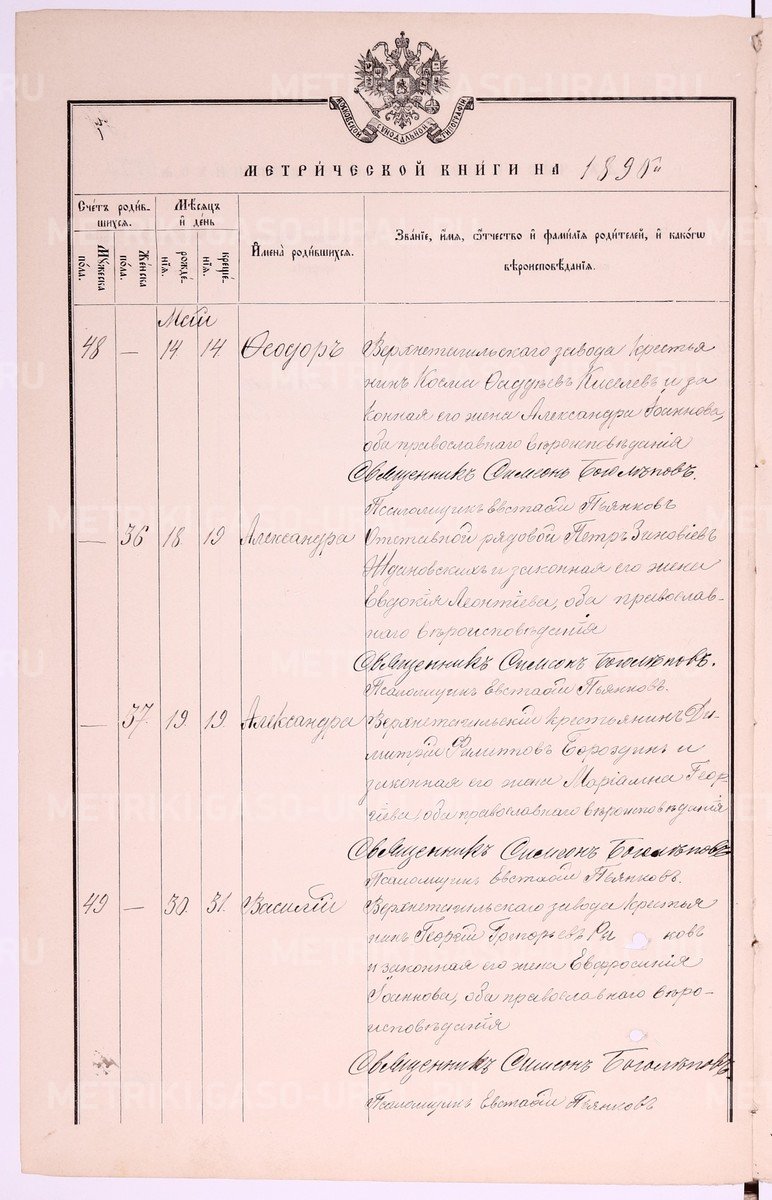 МОСКОВСКОЙ СѴНОДАЛЬНОЙ ТИПОГРАФІИ
МЕТРИ́ЧЕСКОЙ КНИ́ГИ НА 189
Сче́тъ роди́в-
шихся.
Мѣ́сяцъ
и҆ де́нь
Му́жеска
по́ла.
Же́нска
по́ла.
рожде́-
нїѧ.
креще́-
нїѧ.
И҆мена̀ роди́вшихся.
Зва́нїе, и҆́мя, ѻ҆́тчество и҆ фами́лїѧ роди́телей, и҆ како́гѡ
вѣроисповѣ́данїѧ.
Май
48 — 14 14 Ѳеодоръ Верхнетагильскаго завода крестья
нинъ Косма Ѳаддѣевъ Киселевъ и за
конная его жена Александра Іоаннова,
оба православнаго вѣроисповѣданія
Священникъ Симеонъ Боголѣповъ.
Псаломщикъ Евстафій Пьянковъ
— 36 18 19 Александра Отставной рядовой Петръ Зиновіевъ
Ждановскихъ и законная его жена
Евдокія Леонтіева, оба православ-
наго вѣроисповѣданія
Священникъ Симеонъ Боголѣповъ.
Псаломщикъ Евстафій Пьянковъ.
— 37. 19. 19. Александра Верхнетагильскій крестьянинъ Ди-
митрій Филипповъ Бороздинъ и
законная его жена Маріамна Геор-
гіева, оба православнаго вѣроисповѣданія
Священникъ Симеонъ Боголѣповъ
Псаломщикъ Евстафій Пьянковъ.
49 — 30. 31. Василій Верхнетагильскаго завода крестья
нинъ Георгій Григорьевъ Ры ковъ
и законная его жена Евфросинія
Іоаннова, оба православнаго вѣро-
исповѣданія
Священникъ Симеонъ Боголѣповъ
Псаломщикъ Евстафій Пьянковъ
METRIKI.GASO-URAL.RU